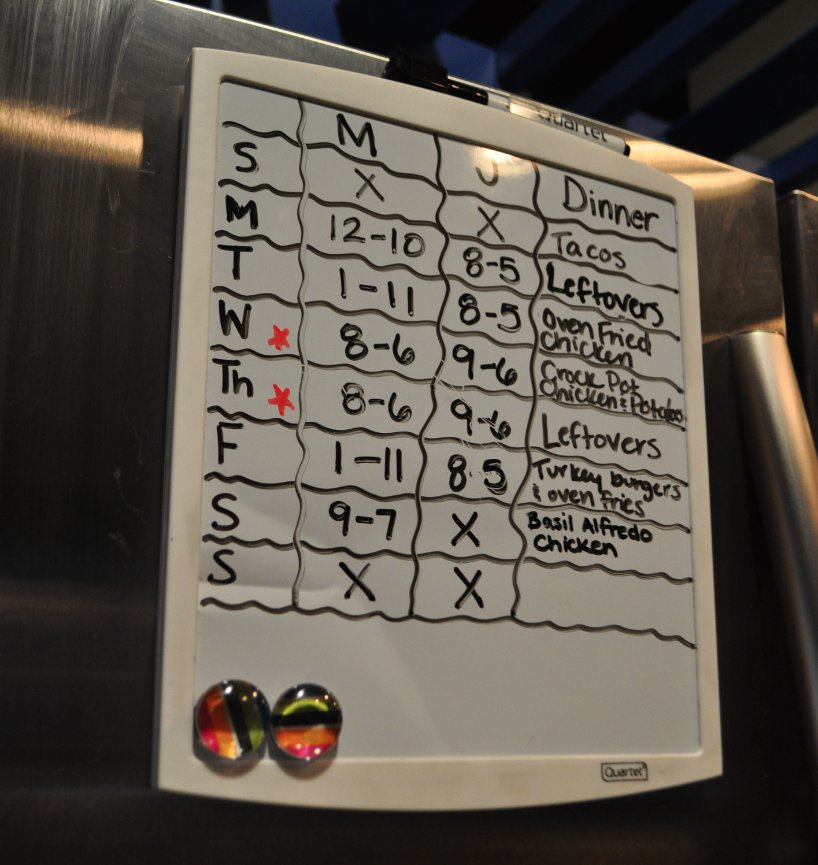 Quartet
M J Dinner
S X X Tacos
M 12-10 8-5 Leftovers
T 1-11 8-5 Oven Fried
Chicken
W 8-6 9-6 Crock Pot
Chicken & Potatoes
Th 8-6 9-6 Leftovers
F 1-11 8-5 Turkey burgers
& oven fries
S 9-7 X Basil Alfredo
Chicken
S X X
Quartet